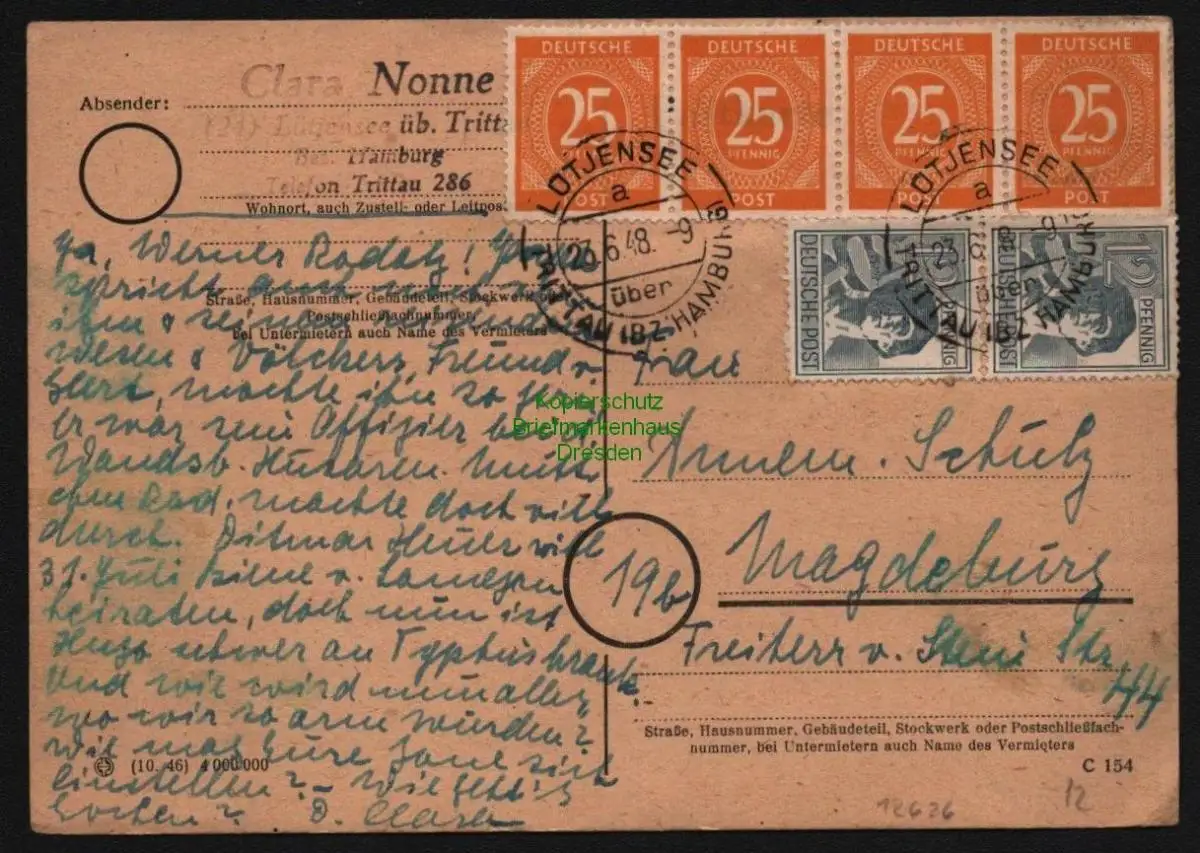 Absender:
Clara Nonne
(24) Lütjensee üb. Trittau
Bez. Hamburg
Telefon Trittau 286
Wohnort, auch Zustell- oder Leitpos
Straße, Hausnummer, Gebäudeteil, Stockwerk od
Postschließfachnummer,
bei Untermietern auch Name des Vermieters
DEUTSCHE DEUTSCHE DEUTSCHE DEUTSCHE
25 25 25 25
PFENNIG PFENNIG PFENNIG
POST POST POST POST
12 PFENNIG DEUTSCHE POST
12 PFENNIG DEUTSCHE POST
LÜTJENSEE
a
23.6.48.-9
über
TRITTAU (BZ. HAMBURG)
LÜTJENSEE
a
23.6.48.-9
über
TRITTAU (BZ. HAMBURG)
Ja, Werner Radatz!
spricht
ihm & seine
Wesen & Völckers Freund v.
Gert, mochte ihn so
Er war sein Offizier bei d.
Wandsb. Husaren.
dem Rad, machte doch viel
durch. Ditmar Heuer will
31. Juli v.
heiraten, doch nun ist
Hugo schwer an Typhus krank.
Und wie wird nun alles,
wo wir so arm wurden?
Wie mag Eure Zone sich
einstellen? - Wie geht's
D. Clara
Frau
Annem. Schulz
19b
Magdeburg
Freiherr v. Stein Str.
44
Straße, Hausnummer, Gebäudeteil, Stockwerk oder Postschließfach-
nummer, bei Untermietern auch Name des Vermieters
(10. 46) 4 000 000
C 154
12626
12
Kopierschutz
Briefmarkenhaus
Dresden